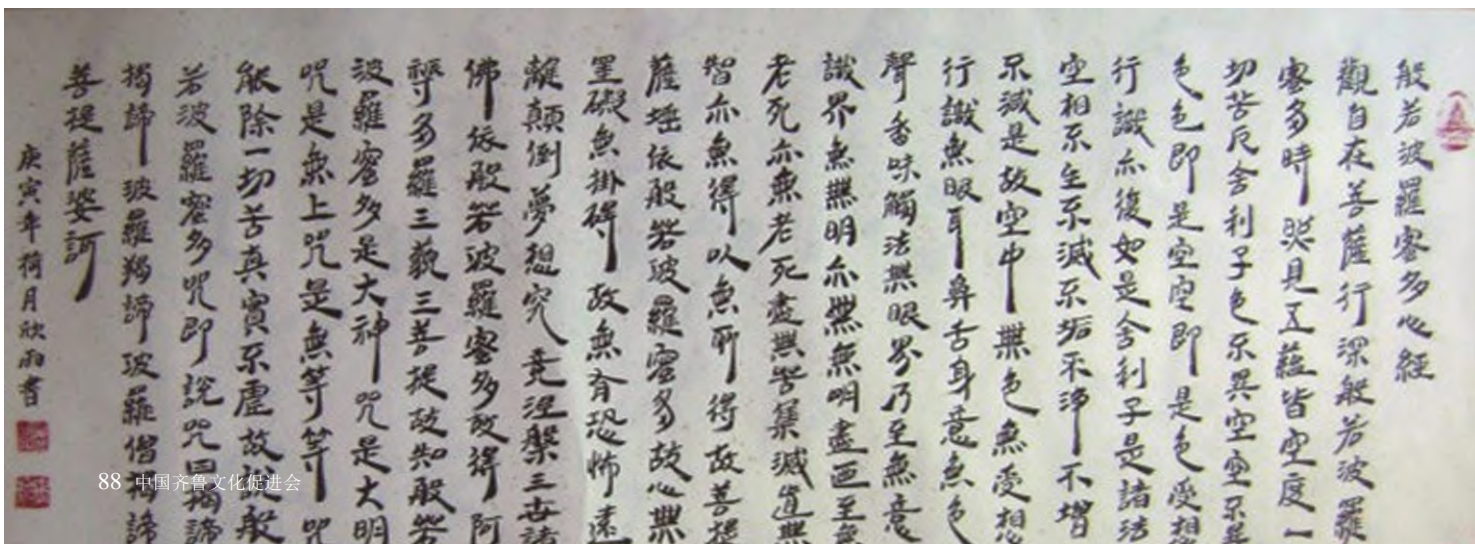 般若波羅蜜多心經
觀自在菩薩行深般若波羅
蜜多時照見五蘊皆空度一
切苦厄舍利子色不異空空不異
色色即是空空即是色受想
行識亦復如是舍利子是諸法
空相不生不滅不垢不淨不增
不減是故空中無色無受想
行識無眼耳鼻舌身意無色
聲香味觸法無眼界乃至無意
識界無無明亦無無明盡迺至無
老死亦無老死盡無苦集滅道無
智亦無得以無所得故菩提
薩埵依般若波羅蜜多故心無
罣礙無掛碍故無有恐怖遠
離顛倒夢想究竟涅槃三世諸
佛依般若波羅蜜多故得阿
耨多羅三藐三菩提故知般若
波羅蜜多是大神咒是大明
咒是無上咒是無等等咒
能除一切苦真實不虛故說般
若波羅蜜多咒即說咒曰揭諦
揭諦波羅揭諦波羅僧揭諦
菩提薩婆訶
庚寅年荷月欣雨書
88 中国齐鲁文化促进会